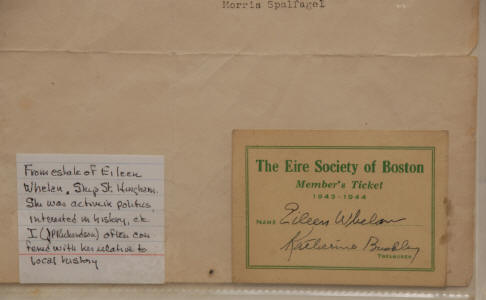 Morris Spalfagel
From estate of Eileen
Whelen. Ship St. Hingham.
She was active in politics,
interested in history, etc
I (JPRichardson) often con
ferred with her relative to
local history
The Eire Society of Boston
Member's Ticket
1943-1944
NAME Eileen Whelan
Katherine Buckley
TREASURER